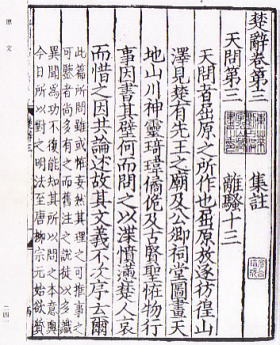 楚辭卷第三　集註
天問第三　離騷十三
天問者屈原之所作也屈原放逐彷徨山
澤見楚有先王之廟及公卿祠堂圖畫天
地山川神靈琦瑋僪佹及古賢聖怪物行
事因書其壁何而問之以渫憤懣楚人哀
而惜之因共論述故其文義不次序云爾
此篇所問雖或怪妄然其理之可推事之
可鑒者尚多有之而舊注之說徒以多識
異聞為功不復能知其所以問之本意與
今日所以對之明法至唐柳宗元始欲質
原文
二四一